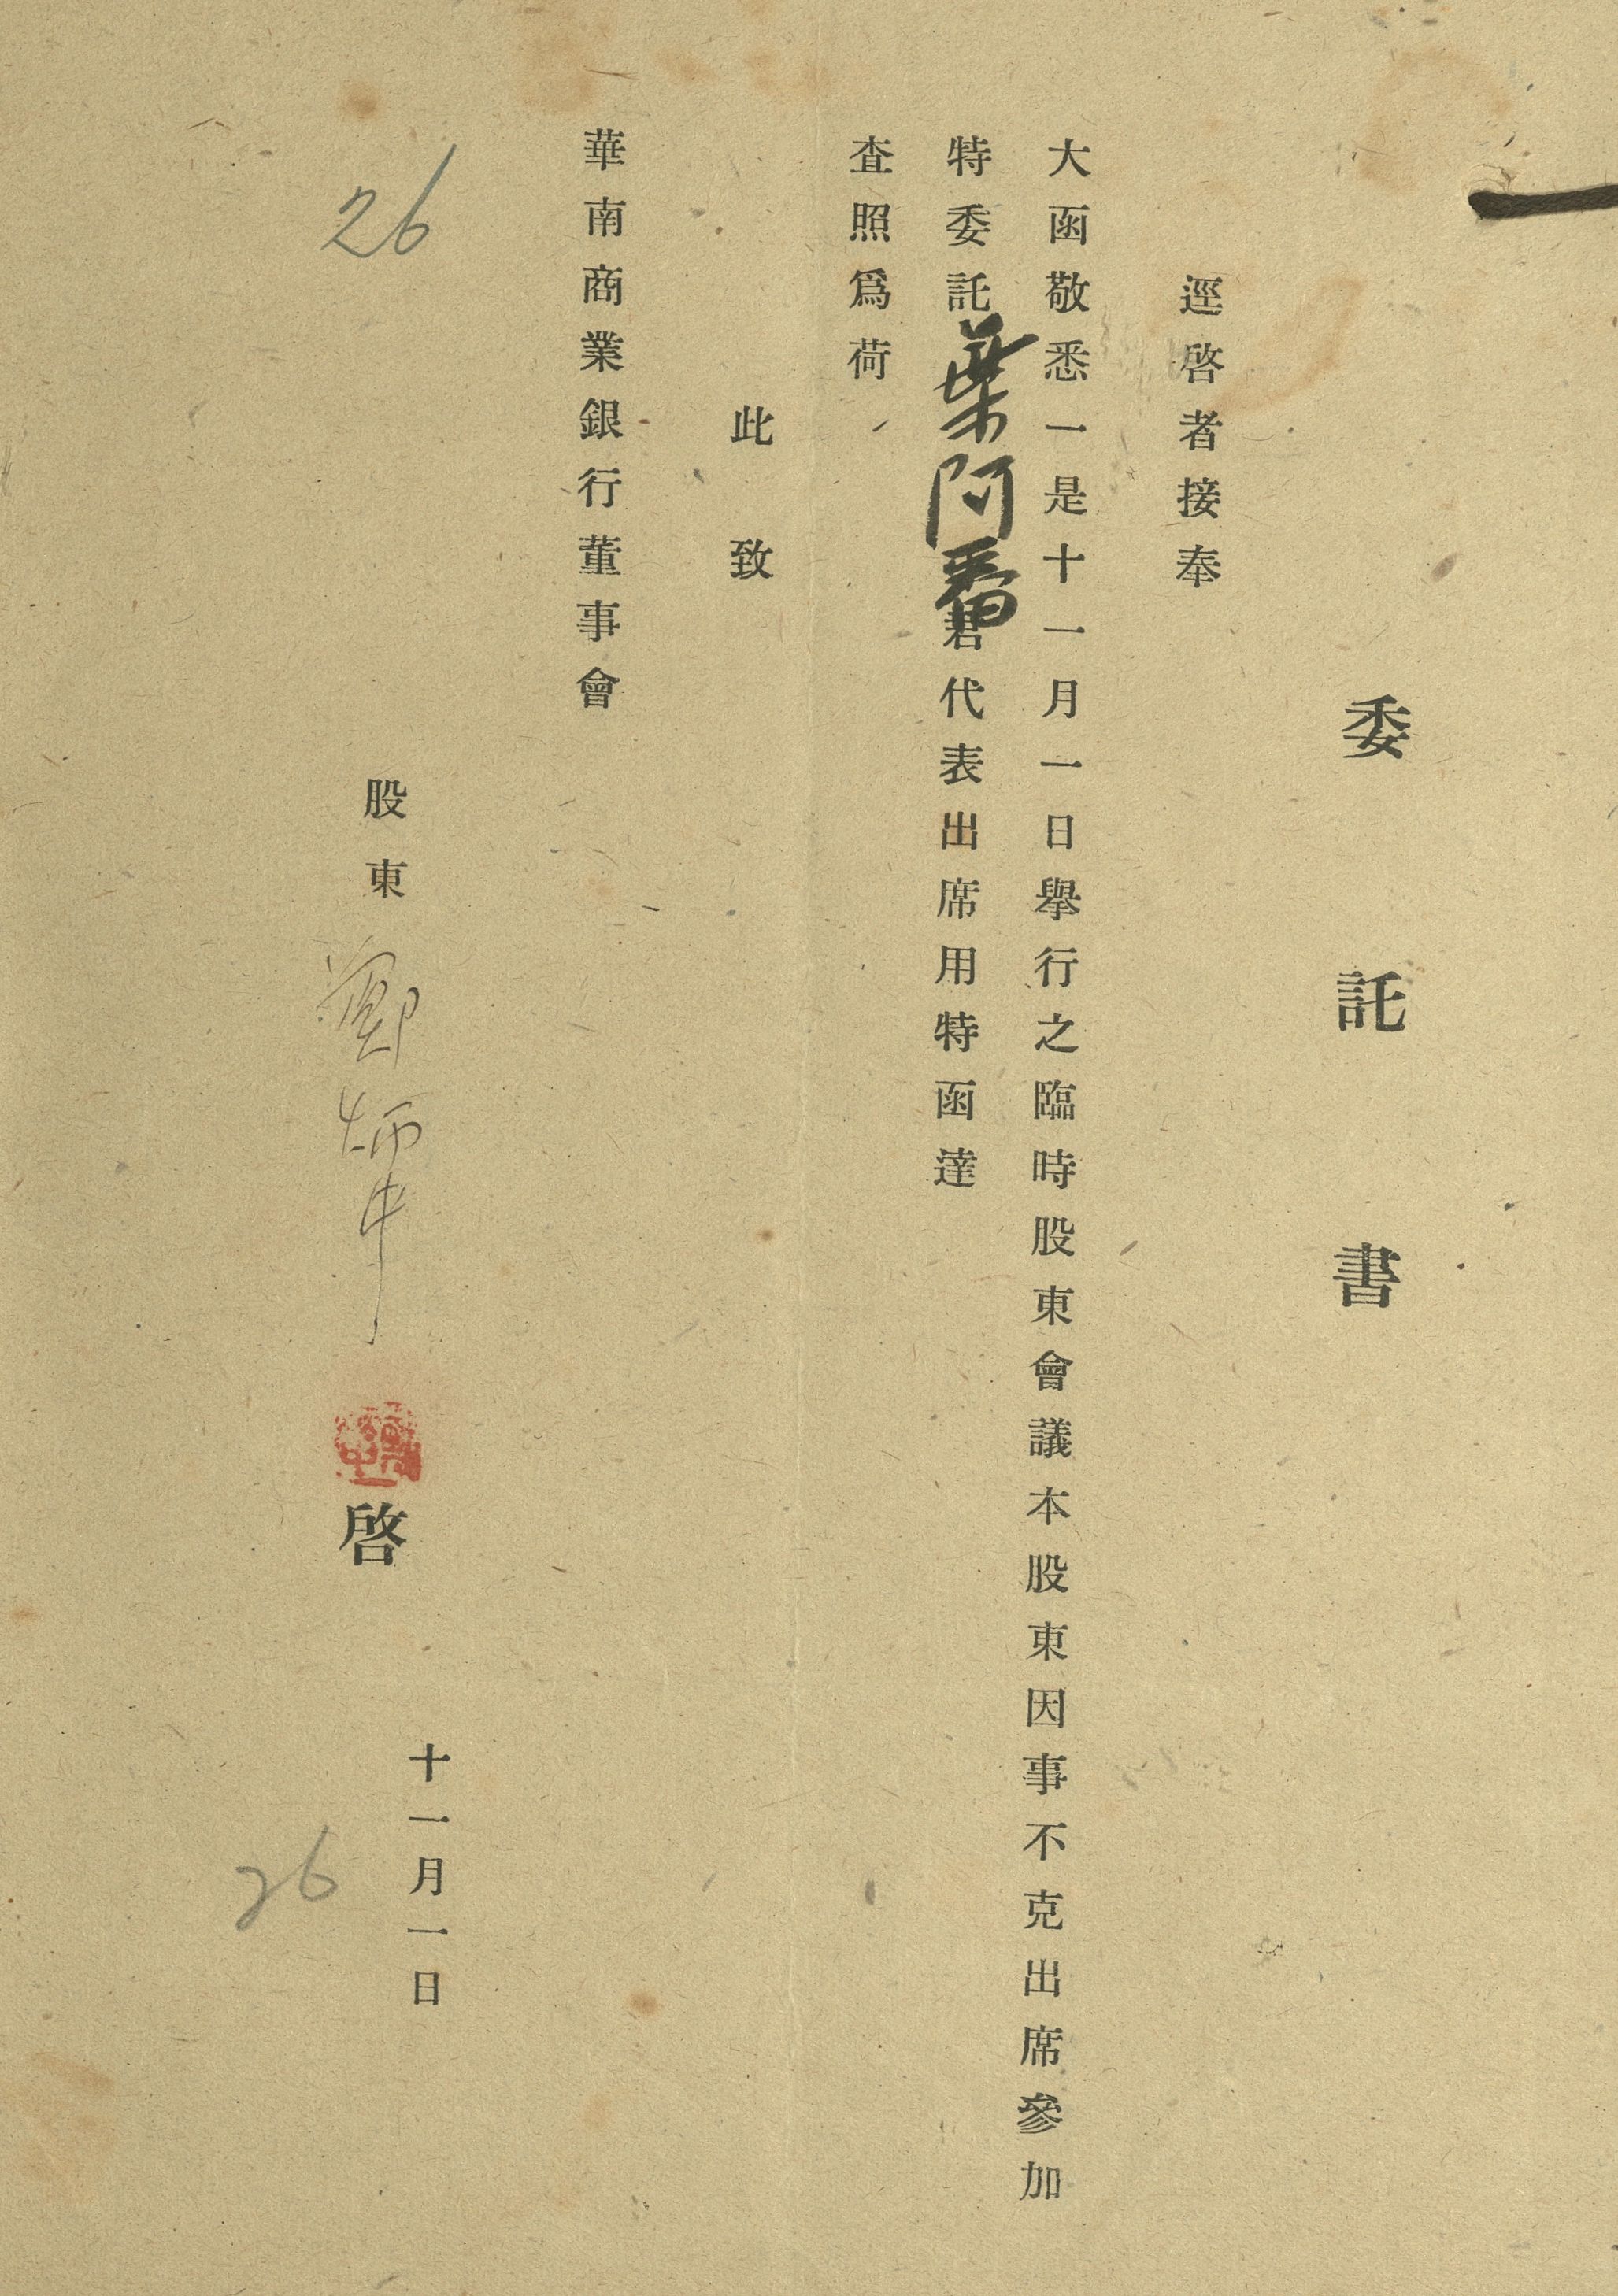 委託書
逕啓者接奉
大函敬悉一是十一月一日舉行之臨時股東會議本股東因事不克出席參加
特委託葉阿番君代表出席用特函達
査照爲荷
此致
華南商業銀行董事會
26
股東鄭炳 啓
十一月一日
26